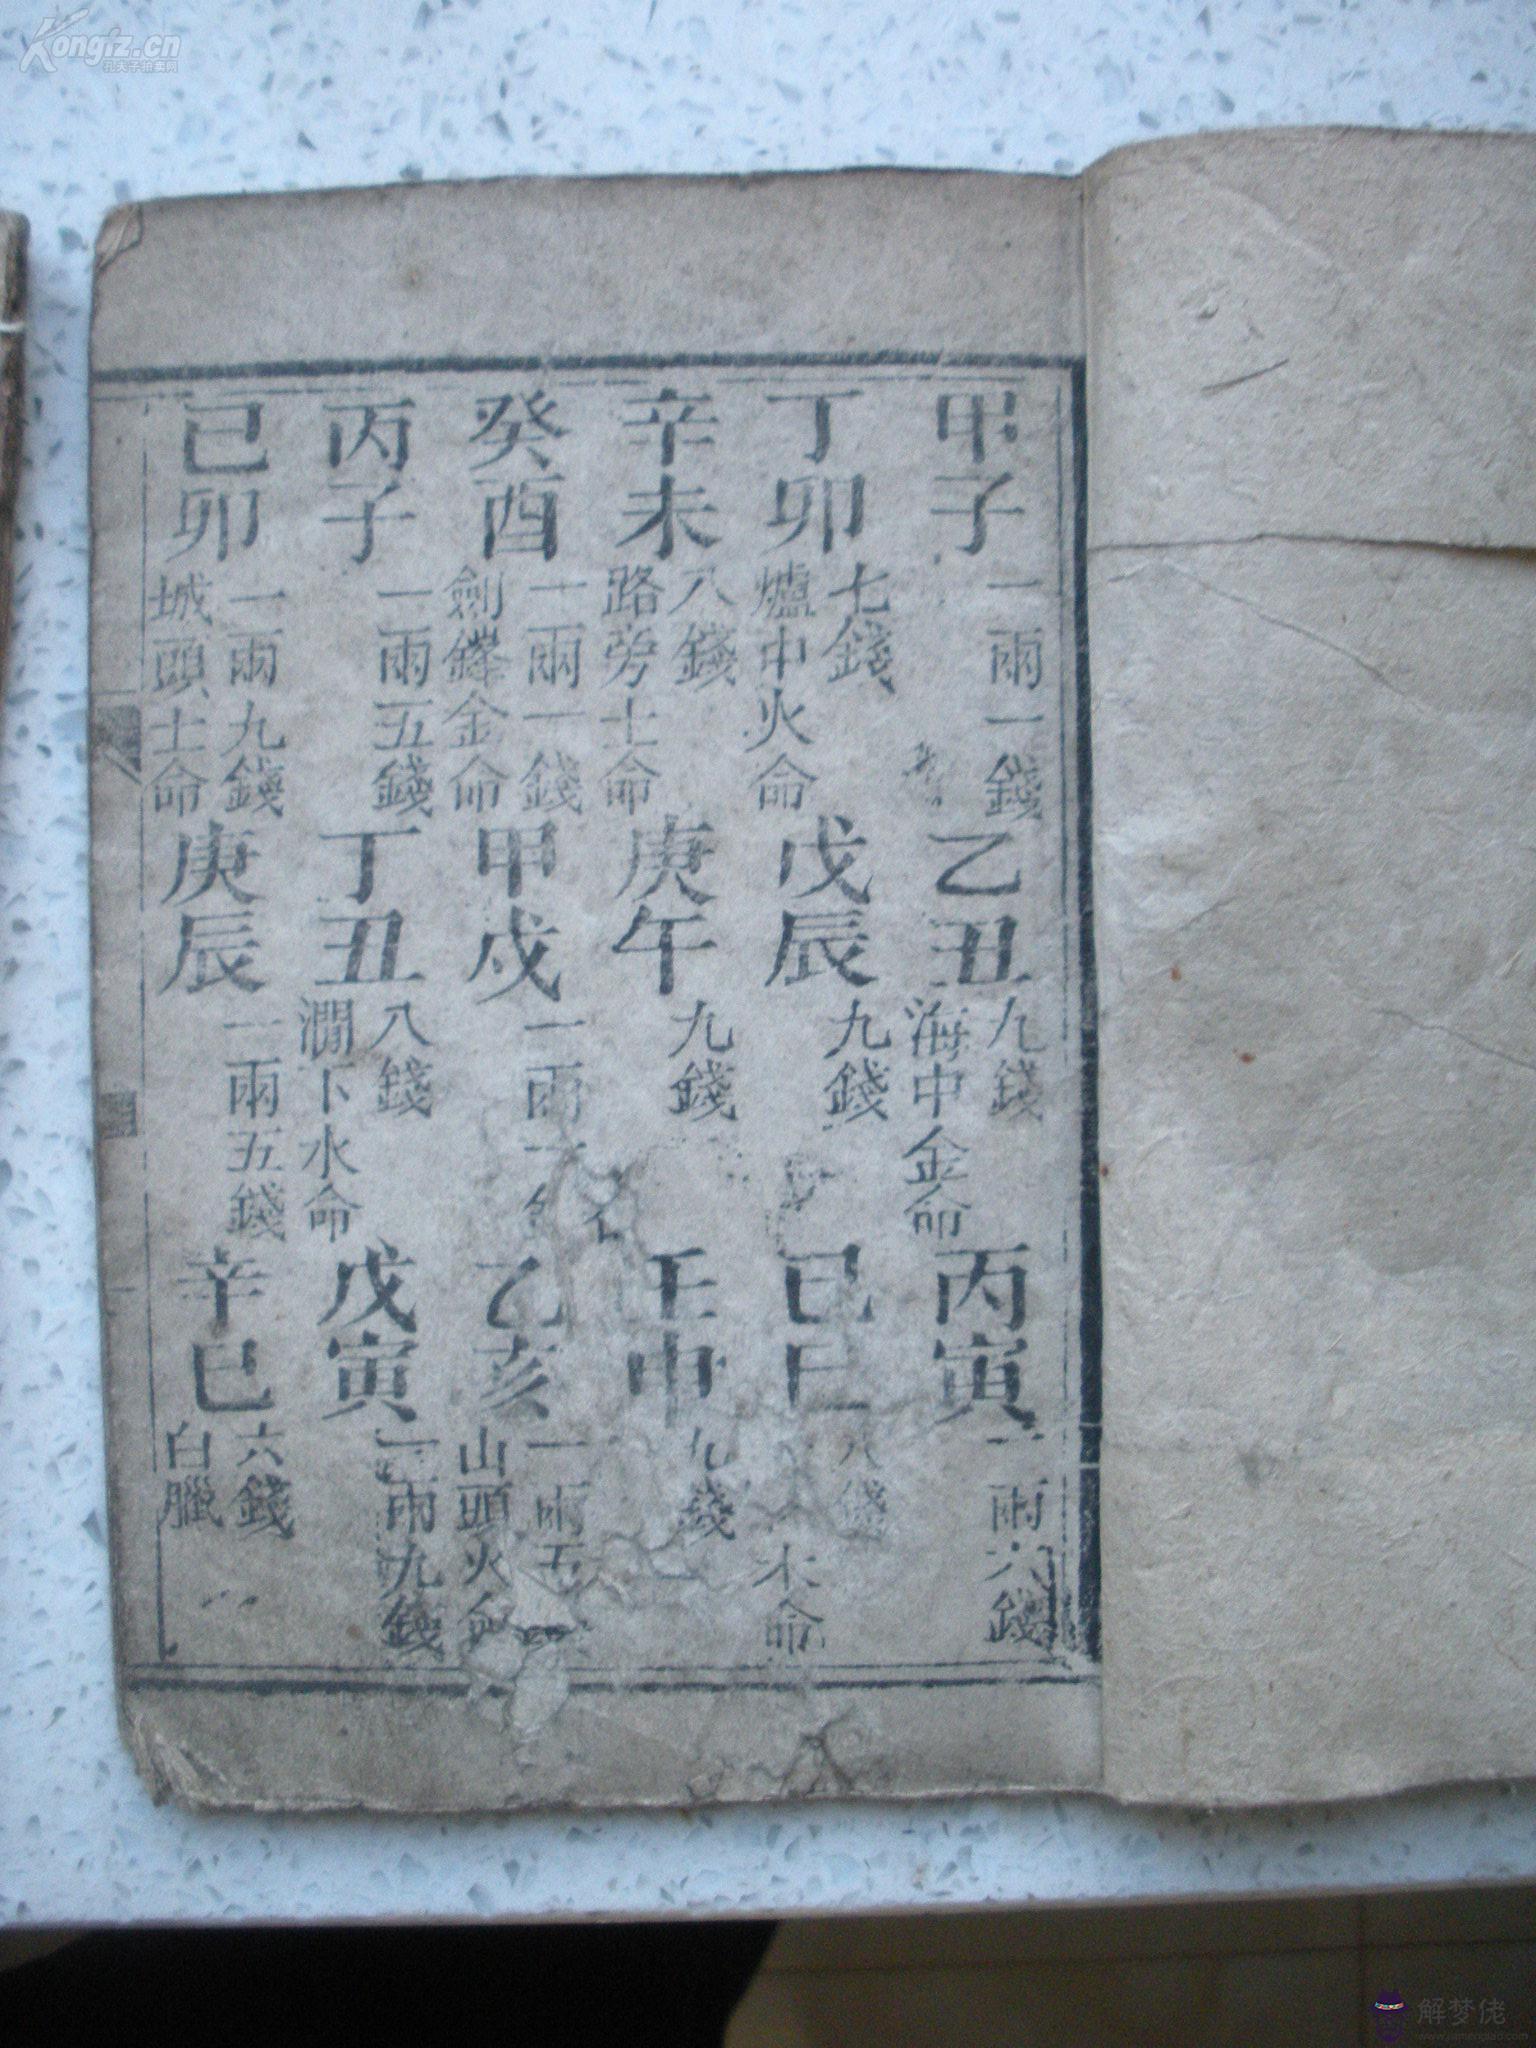 Kongfz.cn
孔夫子拍卖网
甲子 一兩一錢 乙丑 九錢 海中金命 丙寅 一兩六錢
丁卯 七錢 爐中火命 戊辰 九錢 己巳 八錢 木命
辛未 八錢 路旁土命 庚午 九錢 壬申 九錢
癸酉 一兩一錢 劍鏠金命 甲戌 一兩 乙亥 一兩五 山頭火命
丙子 一兩五錢 丁丑 八錢 澗下水命 戊寅 一兩九錢
己卯 一兩九錢 城頭土命 庚辰 一兩五錢 辛巳 六錢 白臘
解梦佬